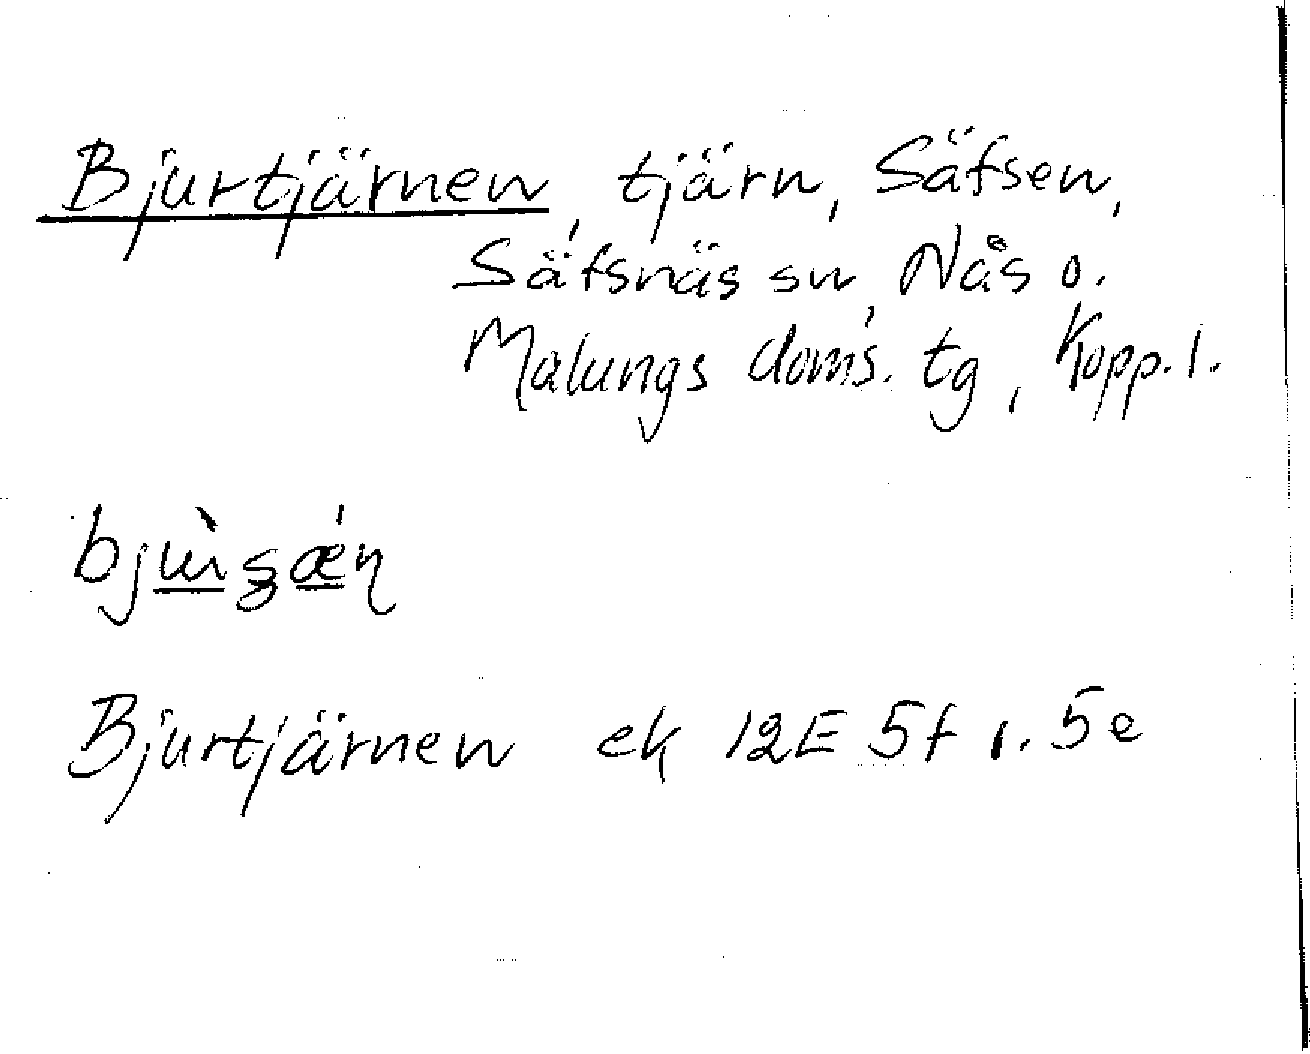 Bjurtjärnen, tjärn, Säfsen,
Säfsnäs sn, Nås o.
Malungs doms. tg, Kopp. l.
Bjurtjärnen ek 12E 5f, 5e